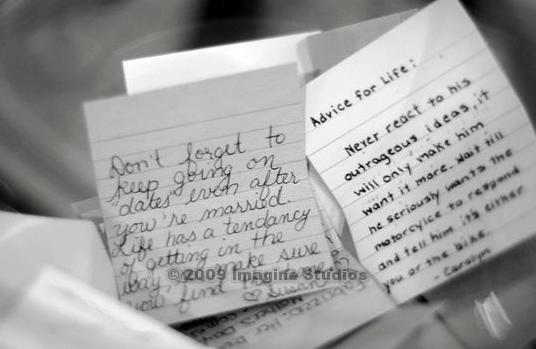 Don't forget to
keep going on
"dates" even after
you're married.
Life has a tendancy
of getting in the
way, make sure
you find the time
♡ Susan
Advice for Life:
Never react to his
outrageous ideas, it
will only make him
want it more. Wait till
he seriously wants the
motorcylce to respond
and tell him it's either
you or the bike.
- Carolyn
Mother's Day
© 2009 Imagine Studios